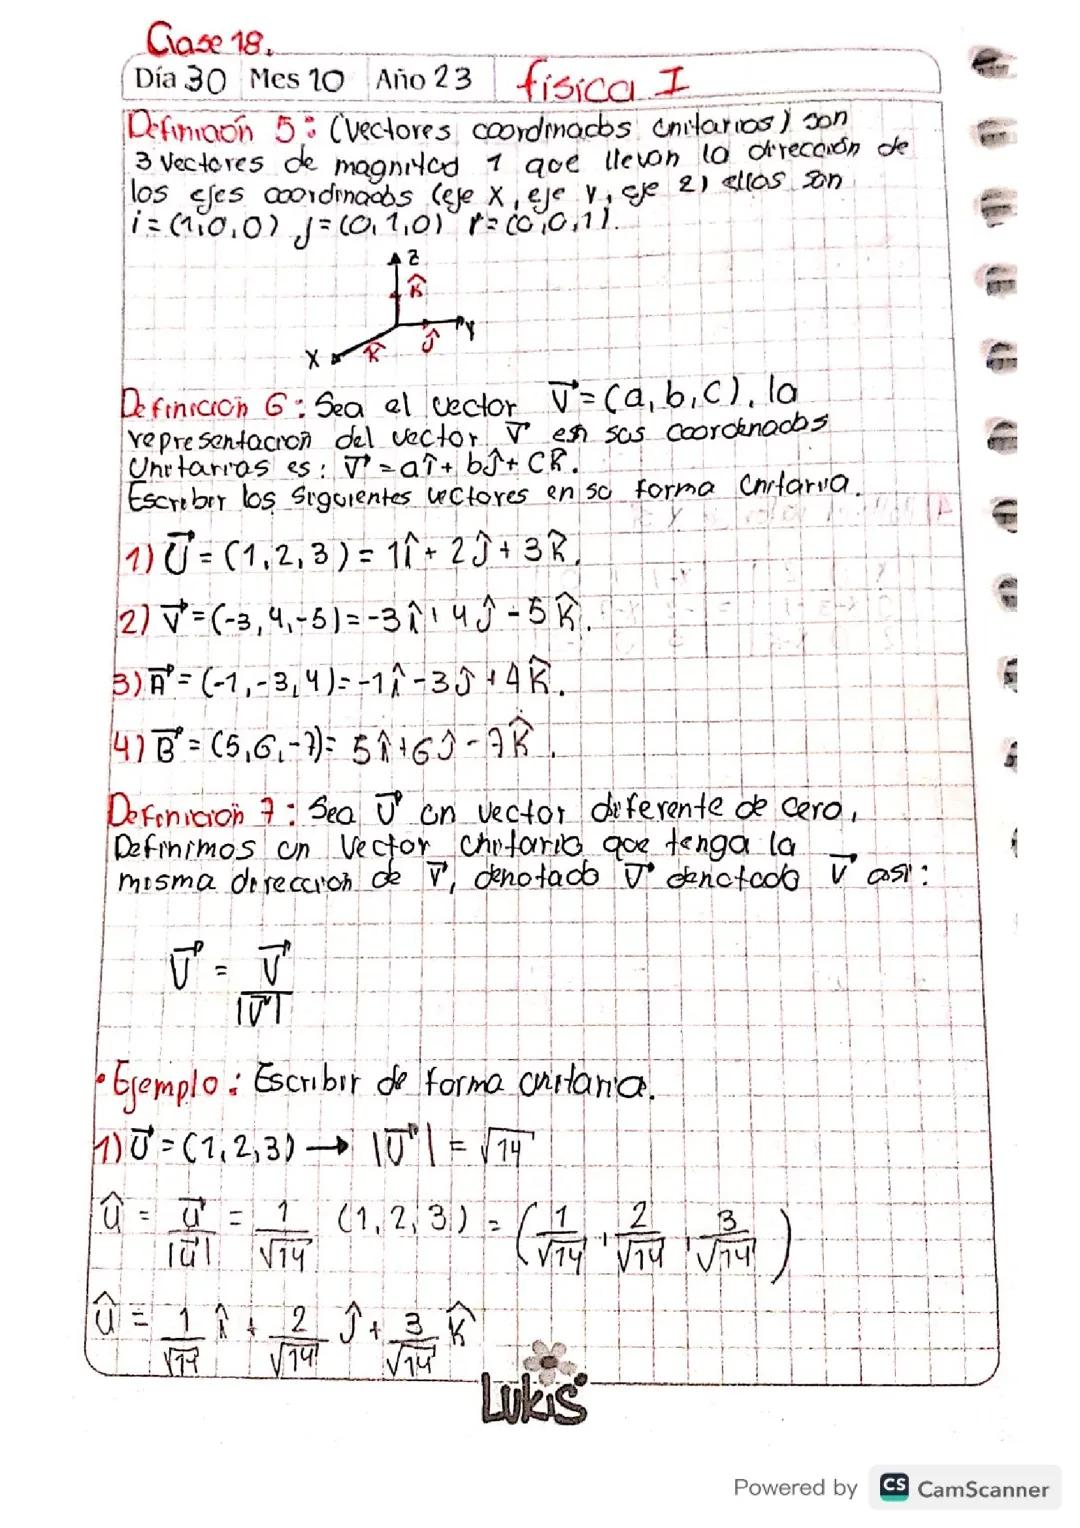 Clase 18.
Día 30 Mes 10 Año 23 física I
Definición 5: (Vectores coordinados unitarios) son
3 vectores de magnitud 1 que llevan la dirección de
los ejes coordinados (eje X, eje Y, eje Z) ellos son
i = (1,0,0) j = (0,1,0) k = (0,0,1).
Z
K̂
Y
ĵ
X
K̂
Definición 6: Sea el vector V⃗ = (a,b,c), la
representación del vector V⃗ en sus coordenadas
Unitarias es: V⃗ = aî + bĵ + ck̂.
Escribir los siguientes vectores en su forma unitaria.
1) U⃗ = (1,2,3) = 1î + 2ĵ + 3k̂.
2) V⃗ = (-3,4,-5) = -3î + 4ĵ - 5k̂.
3) A⃗ = (-1,-3,4) = -1î - 3ĵ + 4k̂.
4) B⃗ = (5,6,-7) = 5î + 6ĵ - 7k̂.
Definición 7: Sea U⃗ un vector diferente de cero,
Definimos un Vector unitario que tenga la
misma dirección de V⃗, denotado V⃗ denotado V⃗ así:
U⃗ = V⃗ / |U⃗|
• Ejemplo: Escribir de forma unitaria.
1) U⃗ = (1,2,3) → |U⃗| = √14
û = u⃗ / |u⃗| = 1/√14 (1,2,3) = (1/√14, 2/√14, 3/√14)
û = 1/√14 î + 2/√14 ĵ + 3/√14 k̂
Lukis
Powered by CS CamScanner